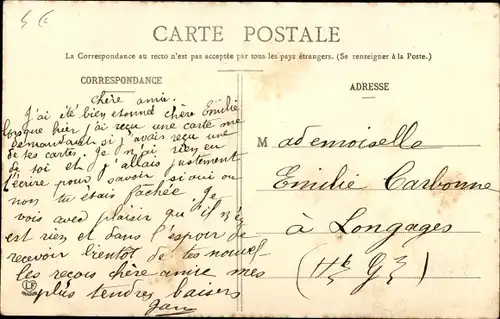 CARTE POSTALE
La Correspondance au recto n'est pas acceptée par tous les pays étrangers. (Se renseigner à la Poste.)
CORRESPONDANCE
chère amie
J'ai été bien etonné chère Emilie
lorsque hier j'ai reçu une carte me
demandant si j'avais reçu une
de tes cartes. Je n'ai rien eu
de toi et j'allais justement
t'ecrire pour savoir si oui ou
non tu étais fachée. Je
vois avec plaisir qu'il n'y
est rien et dans l'espoir de
recevoir bientot de tes nouvel-
les reçois chère amie mes
plus tendres baisers
ADRESSE
Mademoiselle
Emilie Carbonne
à Longages
(Hte Gne)